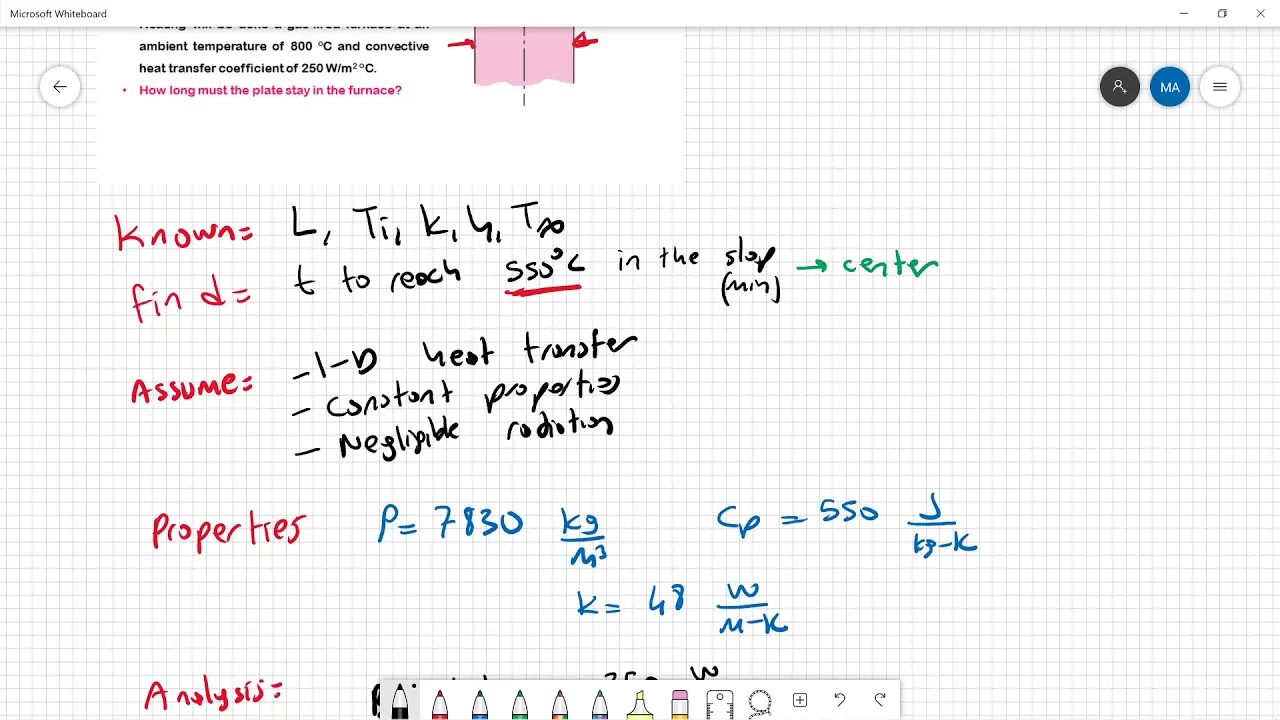 Microsoft Whiteboard
ambient temperature of 800 °C and convective
heat transfer coefficient of 250 W/m² °C.
• How long must the plate stay in the furnace?
MA
Known= L, Ti, k, h, T∞
find= t to reach 550°C in the slap (min) → center
Assume= - 1-D heat transfer
- constant properties
- Negligible radiation
Properties ρ= 7830 kg/m³ Cp = 550 J/kg-K
k= 48 W/m-K
Analysis=